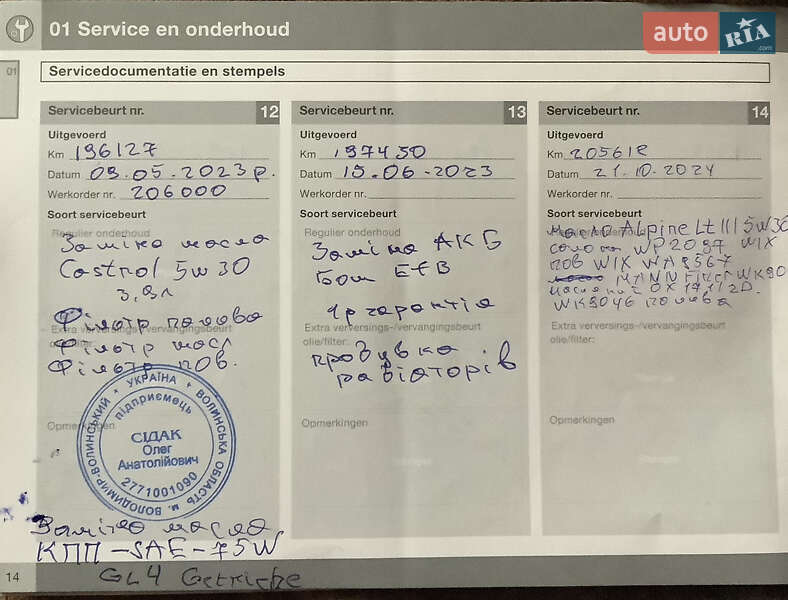 01 Service en onderhoud
auto RIA .com
01
Servicedocumentatie en stempels
Servicebeurt nr. 12
Uitgevoerd
Km 196127
Datum 09.05.2023 р.
Werkorder nr. 206000
Soort servicebeurt
Regulier onderhoud
Заміна масла
Castrol 5w30
3,8л
Фільтр палива
Extra verversings-/vervangingsbeurt
olie/filter:
Фільтр масл
Фільтр пов.
Opmerkingen
УКРАЇНА * ВОЛИНСЬКА ОБЛАСТЬ * м. ВОЛОДИМИР-ВОЛИНСЬКИЙ
підприємець
СІДАК
Олег
Анатолійович
2771001090
Заміна масла
КПП-SAE-75W
GL4 Getriebe
14
Servicebeurt nr. 13
Uitgevoerd
Km 197450
Datum 15.06.2023
Werkorder nr.
Soort servicebeurt
Regulier onderhoud
Заміна АКБ
Бош EFB
1р гарантія
Extra verversings-/vervangingsbeurt
olie/filter:
продувка
радіаторів
Opmerkingen
Servicebeurt nr. 14
Uitgevoerd
Km 205612
Datum 21.10.2024
Werkorder nr.
Soort servicebeurt
масло Alpine Lt III 5w30
WP2097 WIX
пов WIX WA9567
MANN
OX171/2D.
WK9046 палива
Extra verversings-/vervangingsbeurt
olie/filter:
Opmerkingen